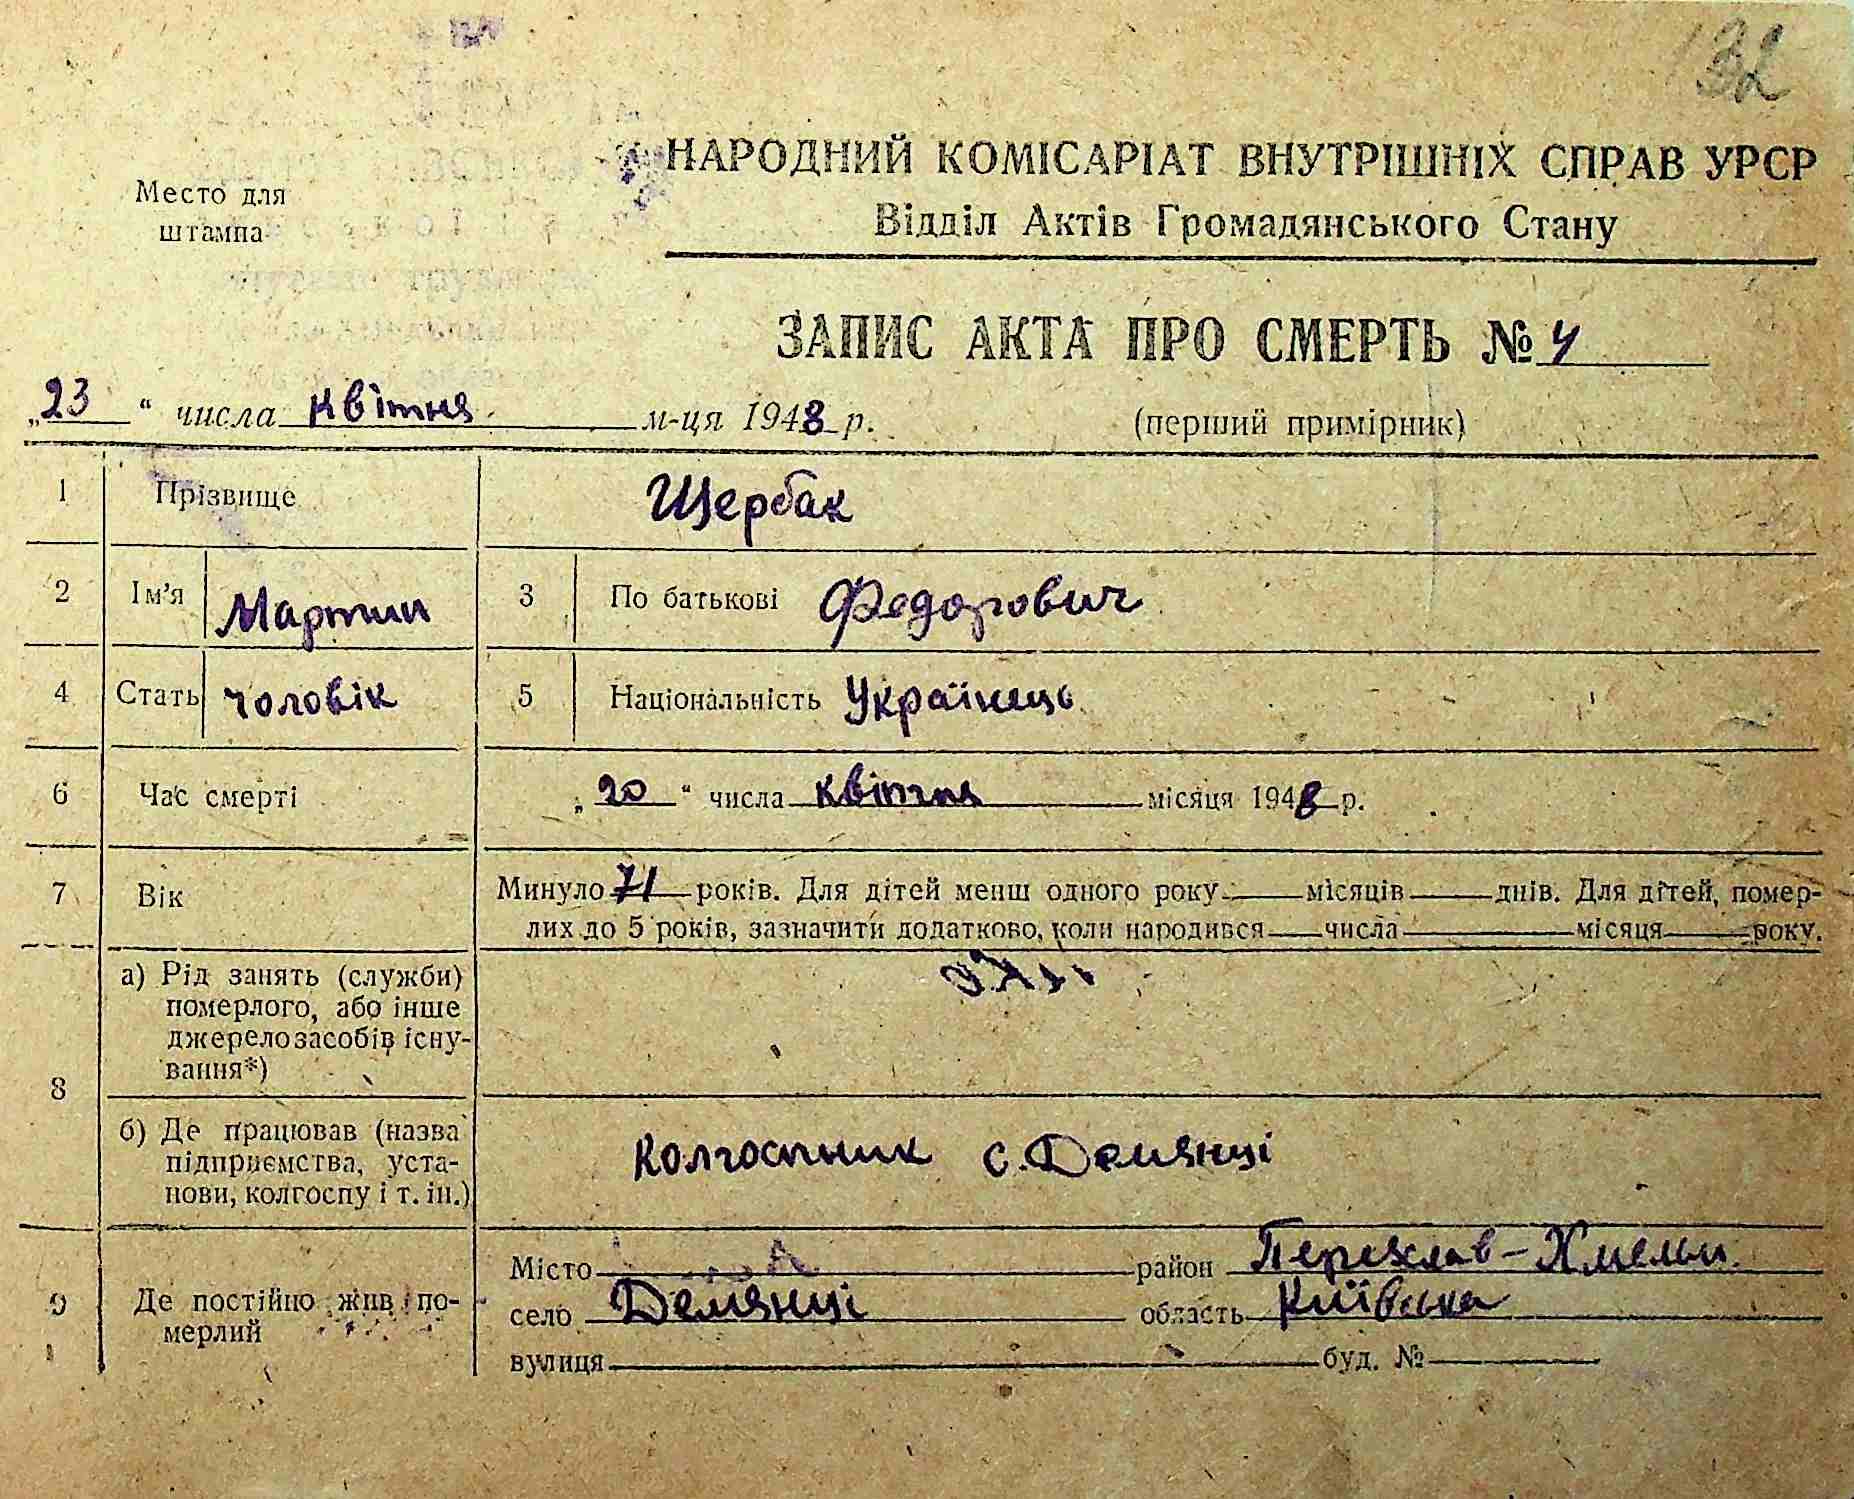 132
НАРОДНИЙ КОМІСАРІАТ ВНУТРІШНІХ СПРАВ УРСР
Место для
штампа
Відділ Актів Громадянського Стану
ЗАПИС АКТА ПРО СМЕРТЬ № 4
„23“ числа квітня м-ця 1948 р. (перший примірник)
1 Прізвище Щербак
2 Ім’я Мартин 3 По батькові Федорович
4 Стать чоловік 5 Національність Українець
6 Час смерті „20“ числа квітня місяця 1948 р.
7 Вік Минуло 71 років. Для дітей менш одного року місяців днів. Для дітей, помер-
лих до 5 років, зазначити додатково, коли народився числа місяця року.
8 а) Рід занять (служби)
померлого, або інше
джерело засобів існу-
вання*)
б) Де працював (назва
підприємства, уста-
нови, колгоспу і т. ін.) Колгоспник с. Демянці
9 Де постійно жив по-
мерлий
Місто район Переяслав-Хмельн.
село Демянці область Київська
вулиця буд. №